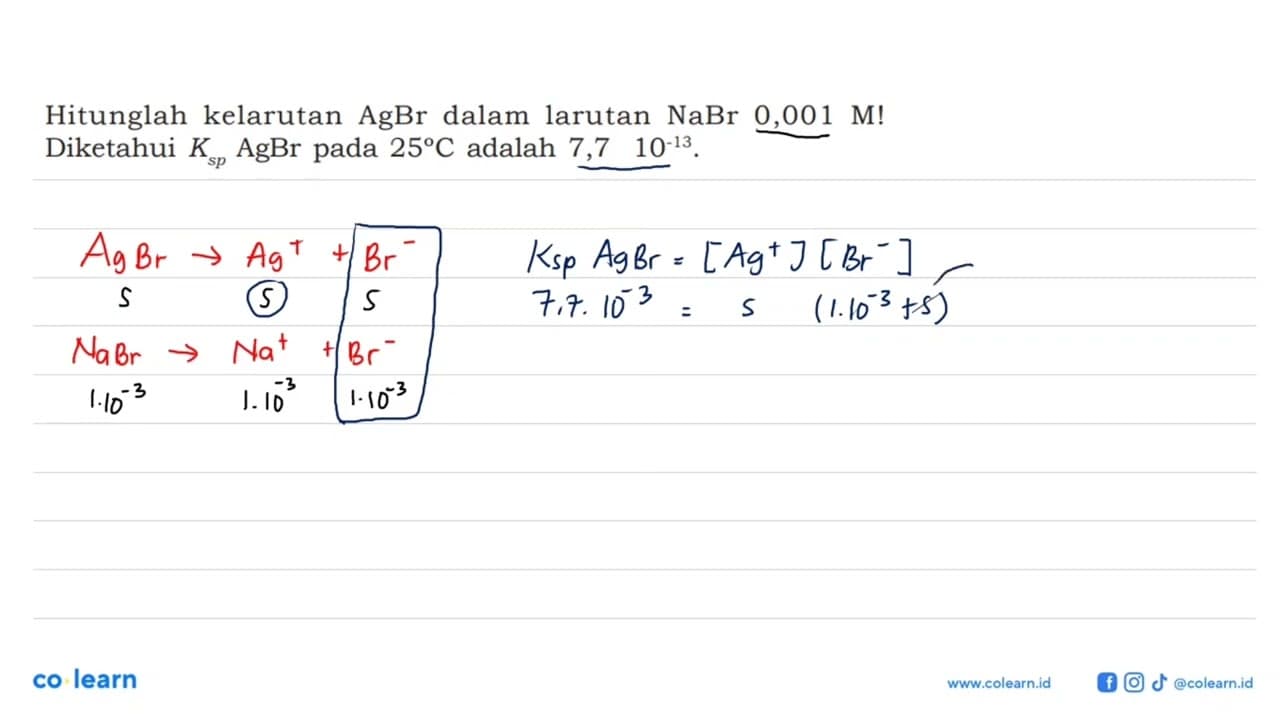 Hitunglah kelarutan AgBr dalam larutan NaBr 0,001 M!
Diketahui Ksp AgBr pada 25°C adalah 7,7 10⁻¹³.
AgBr → Ag⁺ + Br⁻
s s s
NaBr → Na⁺ + Br⁻
1.10⁻³ 1.10⁻³ 1.10⁻³
Ksp AgBr = [Ag⁺] [Br⁻]
7,7. 10⁻³ = s (1.10⁻³ + s)
co learn
www.colearn.id
@colearn.id